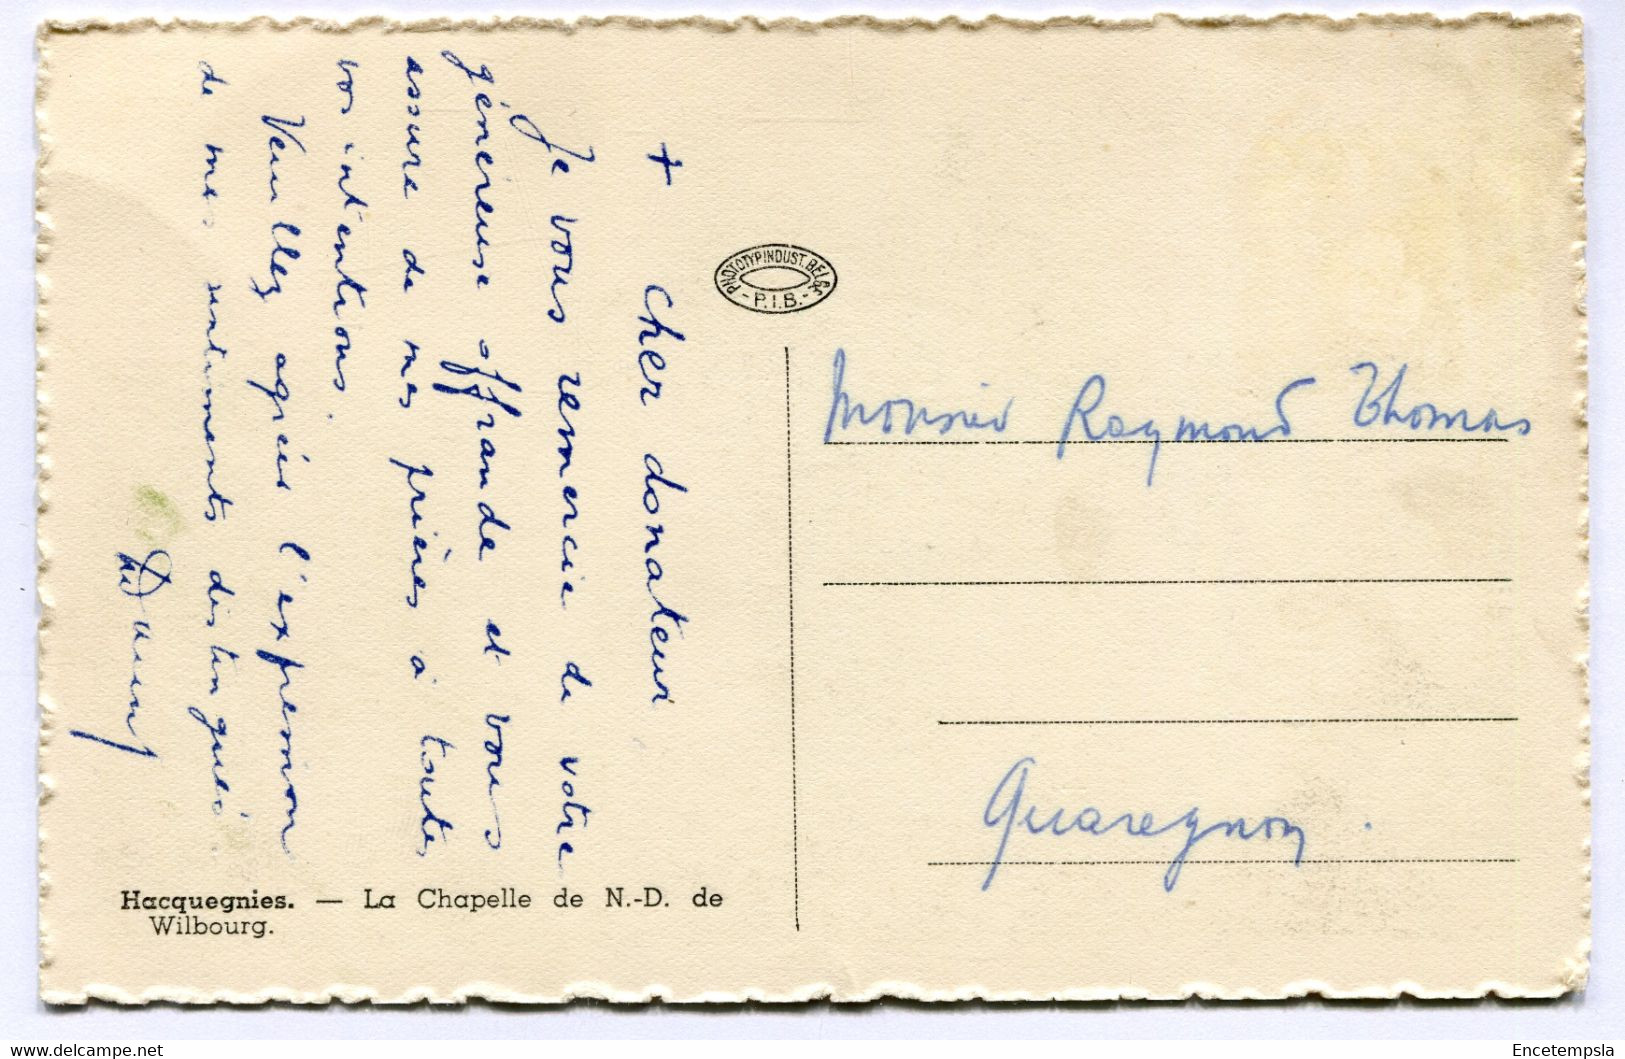 + Cher donateur
Je vous remercie de votre
généreuse offrande et vous
assure de mes prières à toutes
vos intentions.
Veuillez agréer l'expression
de mes sentiments distingués.
PHOTOTYP. INDUST. BELGE
- P.I.B. -
Monsieur Raymond Thomas
Quaregnon.
Hacquegnies. — La Chapelle de N.-D. de
Wilbourg.
Encetempsla
delcampe.net